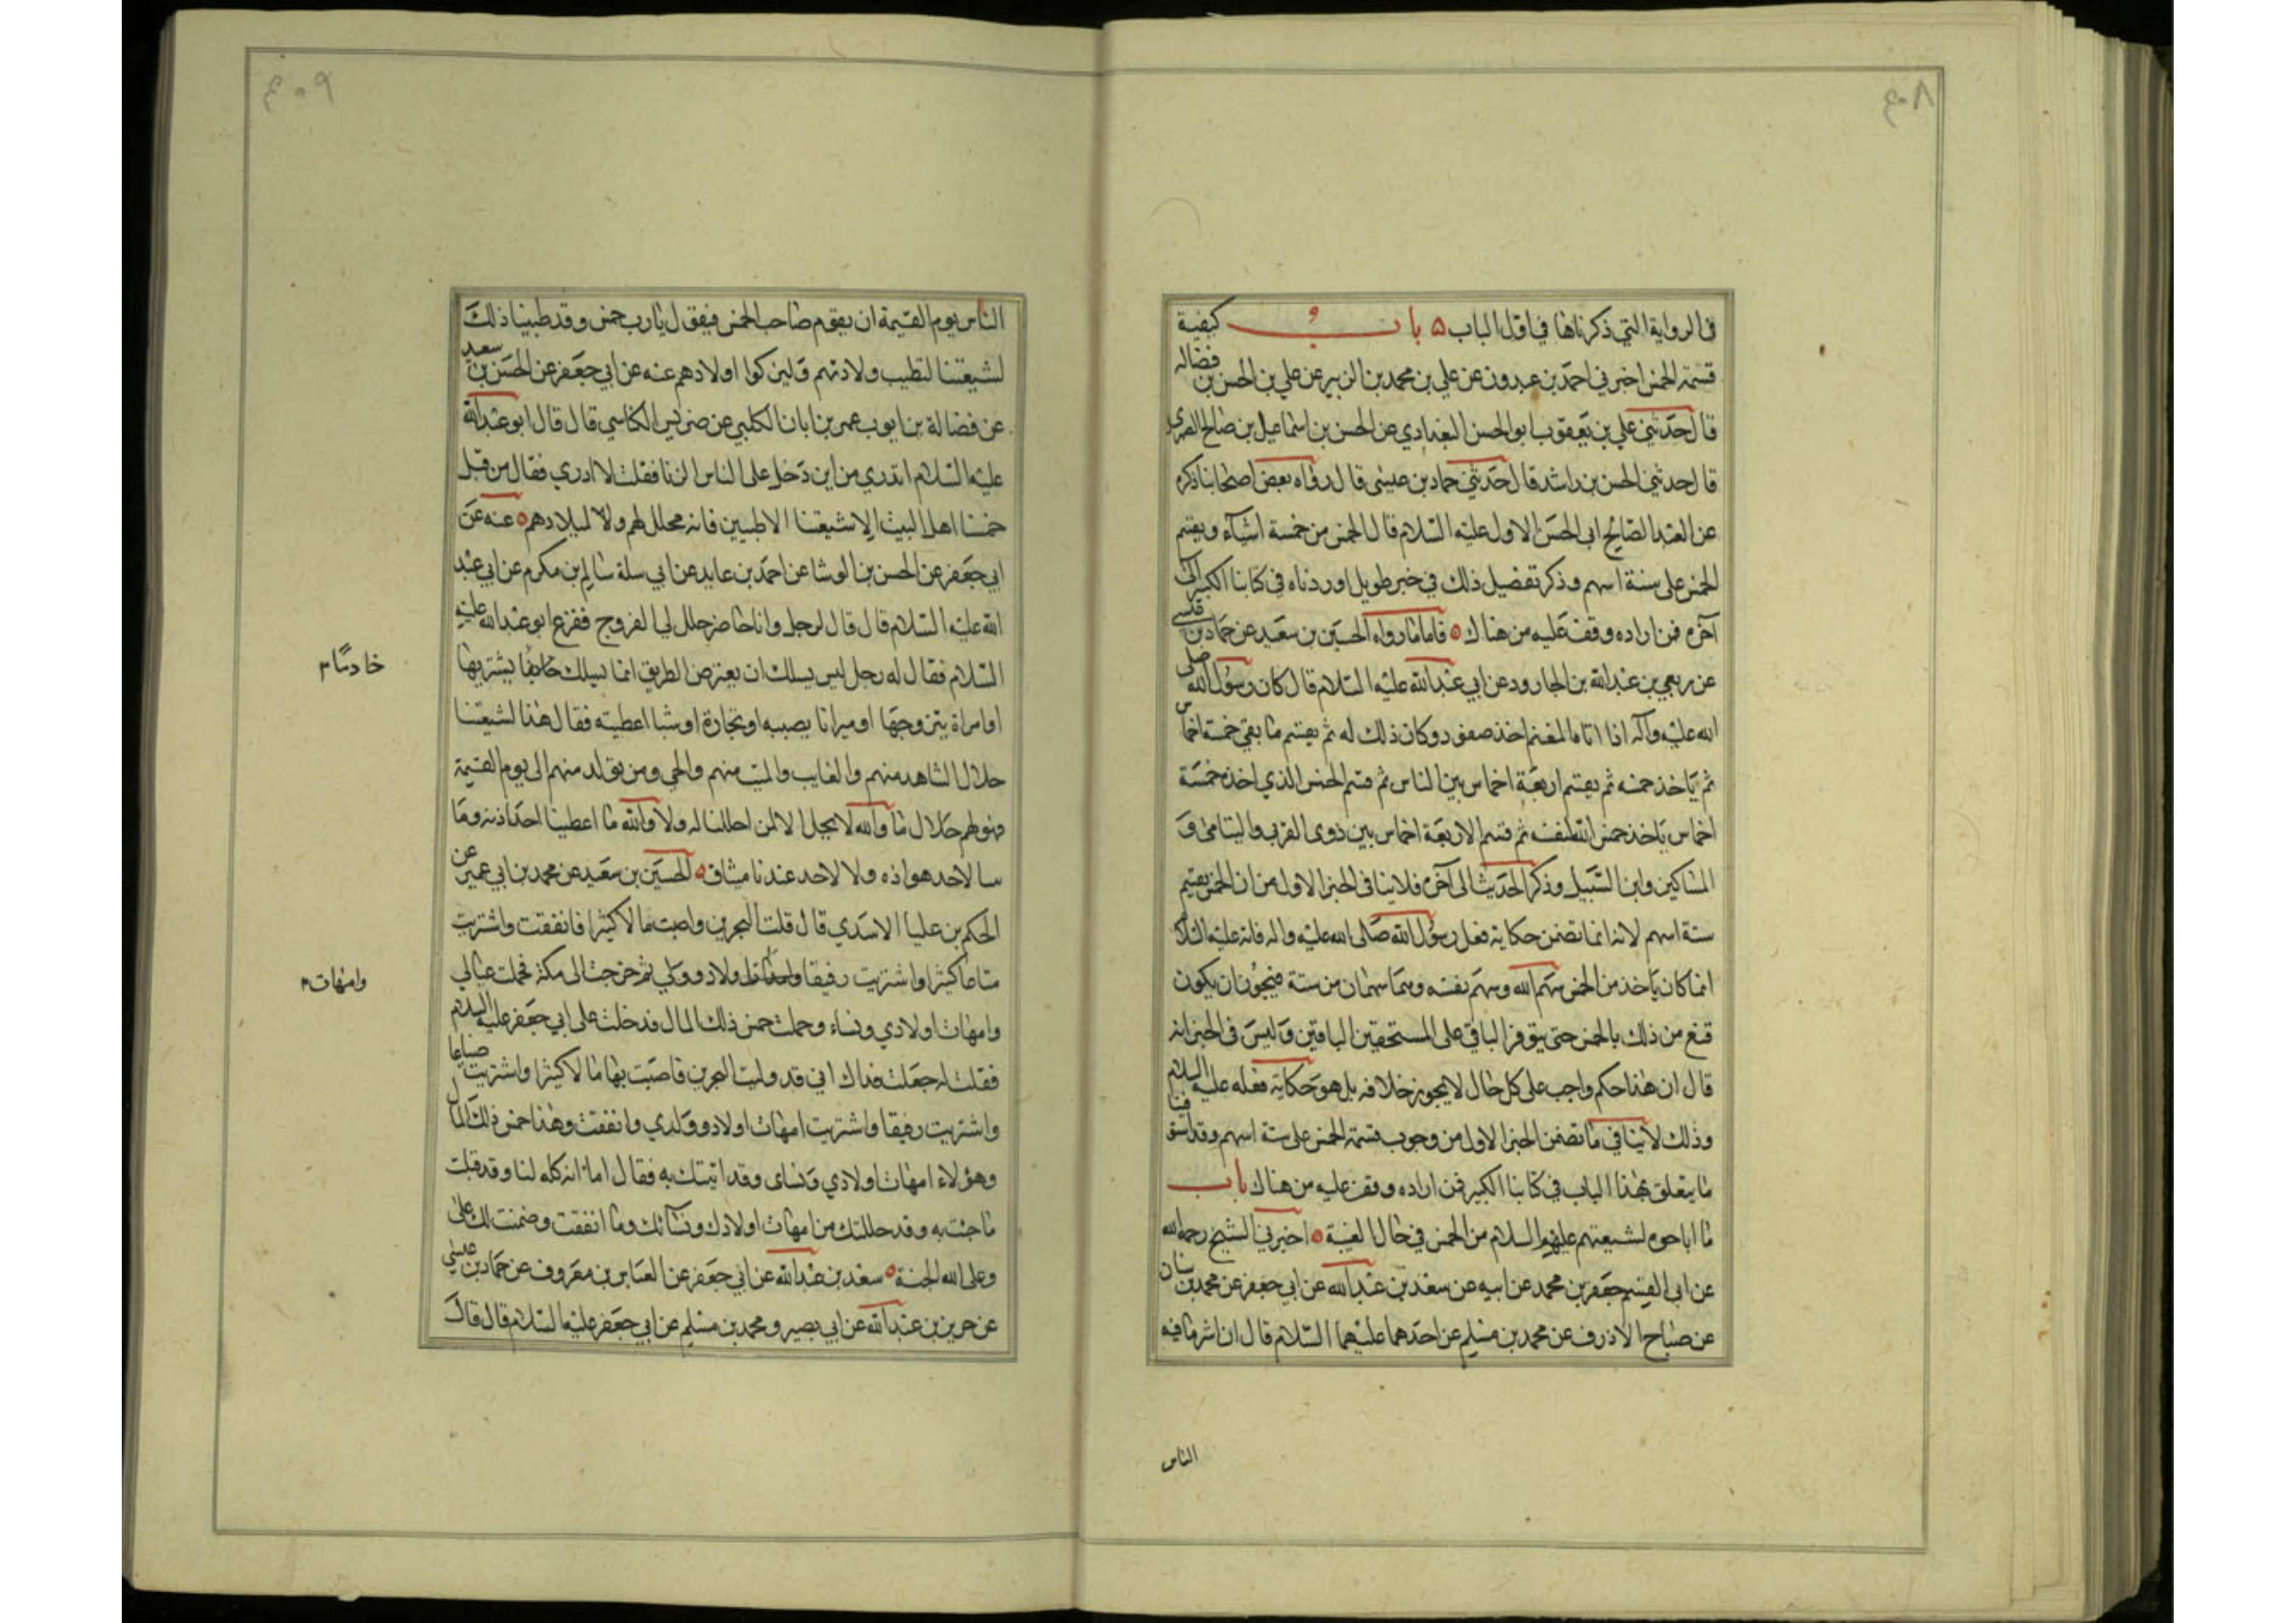 في الرواية التي ذكرناها في اول الباب ٥ باب كيفية
قسمة الخمس اخبرني احمد بن عبدون عن علي بن محمد بن الزبير عن علي بن الحسن بن فضاله
قال حدثني علي بن يعقوب ابو الحسن البغدادي عن الحسن بن اسماعيل بن صالح الصيمري
قال حدثني الحسن بن راشد قال حدثني حماد بن عيسى قال رواه بعض اصحابنا ذكره
عن العبد الصالح ابي الحسن الاول عليه السلام قال الخمس من خمسة اشياء ويقسم
الخمس على ستة اسهم وذكر تفصيل ذلك في خبر طويل اوردناه في كتابنا الكبير الى
آخره فمن اراده وقف عليه من هناك ٥ فاما ما رواه الحسين بن سعيد عن حماد بن عيسى
عن ربعي بن عبد الله بن الجارود عن ابي عبد الله عليه السلام قال كان رسول الله صلى
الله عليه وآله اذا اتاه المغنم اخذ صفوه وكان ذلك له ثم يقسم ما بقي خمسة اخماس
ثم ياخذ خمسه ثم يقسم اربعة اخماس بين الناس ثم قسم الخمس الذي اخذه خمسة
اخماس ياخذ خمس الله لنفسه ثم قسم الاربعة اخماس بين ذوى القربى واليتامى و
المساكين وابن السبيل وذكر الحديث الى آخره فلا ينافى الخبر الاول من ان الخمس يقسم
ستة اسهم لانه انما تضمن حكاية فعل رسول الله صلى الله عليه واله فانه عليه السلام
انما كان ياخذ من الخمس سهم الله وسهم نفسه وهما سهمان من ستة فيجوز ان يكون
قنع من ذلك بالخمس حتى يتوفر الباقي على المستحقين الباقين وليس في الخبر انه
قال ان هذا حكم واجب على كل حال لا يجوز خلافه بل هو حكاية فعله عليه السلام
وذلك لا ينافي ما تضمن الخبر الاول من وجوب قسمة الخمس على ستة اسهم وقد استوفينا
ما يتعلق بهذا الباب في كتابنا الكبير فمن اراده وقف عليه من هناك باب
ما اباحوه لشيعتهم عليهم السلام من الخمس في حال الغيبة ٥ اخبرني الشيخ رحمه الله
عن ابى القسم جعفر بن محمد عن ابيه عن سعد بن عبد الله عن ابي جعفر عن محمد بن سنان
عن صباح الازرق عن محمد بن مسلم عن احدهما عليهما السلام قال ان اشد ما فيه
الناس
الناس يوم القيمة ان يقوم صاحب الخمس فيقول يا رب خمس وقد طيبنا ذلك
لشيعتنا لتطيب ولادتهم وليزكوا اولادهم عنه عن ابي جعفر عن الحسن بن سعيد
عن فضالة بن ايوب عمر بن ابان الكلبي عن ضريس الكناسي قال قال ابو عبد الله
عليه السلام اتدري من اين دخل على الناس الزنا فقلت لا ادري فقال من قبل
خمسنا اهل البيت الا شيعتنا الاطيبين فانه محلل لهم ولا لميلادهم ٥ عنه عن
ابي جعفر عن الحسن بن الوشا عن احمد بن عايد عن ابي سلمة سالم بن مكرم عن ابي عبد
الله عليه السلام قال قال رجل وانا حاضر حلل لي الفروج ففزع ابو عبد الله عليه
السلام فقال له رجل ليس يسلك ان يعترض الطريق انما يسلك خادما يشتريها
خادمًا
او امراة يتزوجها او ميراثا يصيبه او تجارة او شيئا اعطيته فقال هذا لشيعتنا
حلال الشاهد منهم والغايب والميت منهم والحي ومن يولد منهم الى يوم القيمة
فهو لهم حلال اما والله لا يحل الا لمن احللنا له ولا والله ما اعطينا احدا ذمة وما
لاحد هواده ولا لاحد عندنا ميثاق ٥ الحسين بن سعيد عن محمد بن ابي عمير عن
الحكم بن عليا الاسدي قال قلت البحرين واصبت مالا كثيرا فانفقت واشتريت
متاعا كثيرا واشتريت رقيقا اولاد وولد لي ثم خرجت الى مكة فحملت عيالي
وامهات
وامهات اولادي ونساء وحملت خمس ذلك المال فدخلت على ابي جعفر عليه السلام
فقلت له جعلت فداك اني قد وليت البحرين فاصبت بها مالا كثيرا واشتريت ضياعا
واشتريت رقيقا واشتريت امهات اولاد وولدي وانفقت وهذا خمس ذلك المال
وهؤلاء امهات اولادي ونساى وقد اتيتك به فقال اما انه كله لنا وقد قبلت
ما جئت به وقد حللتك من امهات اولادك ونسائك وما انفقت وضمنت لك على
وعلى الله الجنة ٥ سعد بن عبد الله عن ابي جعفر عن العباس بن معروف عن حماد بن عيسى
عن حريز بن عبد الله عن ابي بصير ومحمد بن مسلم عن ابي جعفر عليه السلام قال قال